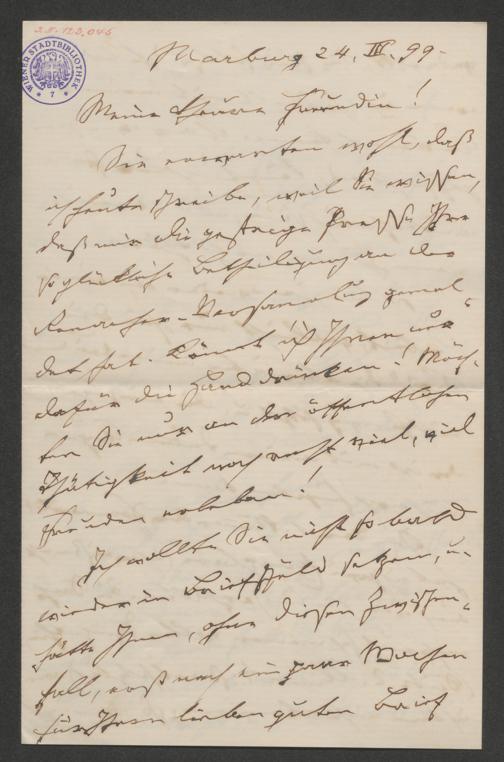 Marburg 24. III. 99.
WIENER STADTBIBLIOTHEK
* 7 *
Meine theure Freundin!
Sie erwarten wohl, daß
ich heute schreibe, weil Sie wissen,
daß mir die gestrige Presse Ihre
so glückliche Betheiligung an der
-Versammlung gemel-
det hat. Könnt ich Ihnen nur
dafür die Hand drücken! Möch-
ten Sie nur an der öffentlichen
Thätigkeit noch recht viel, viel
Freuden erleben!
Ich wollte Sie nicht so bald
wieder in Briefschuld setzen, u.
hätte Ihnen, ohne diesen Zwischen-
fall, erst nach ein paar Wochen
für Ihren lieben guten Brief